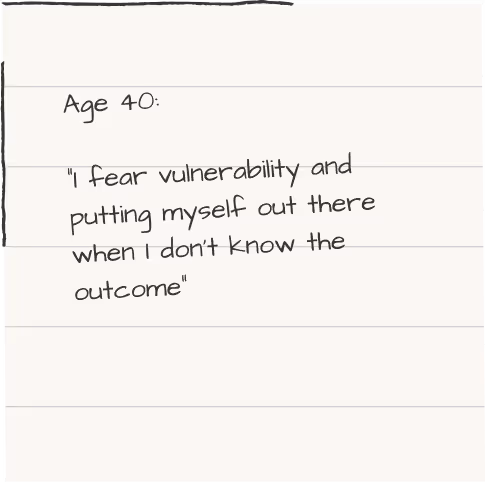 Age 40:
"I fear vulnerability and
putting myself out there
when I don't know the
outcome"